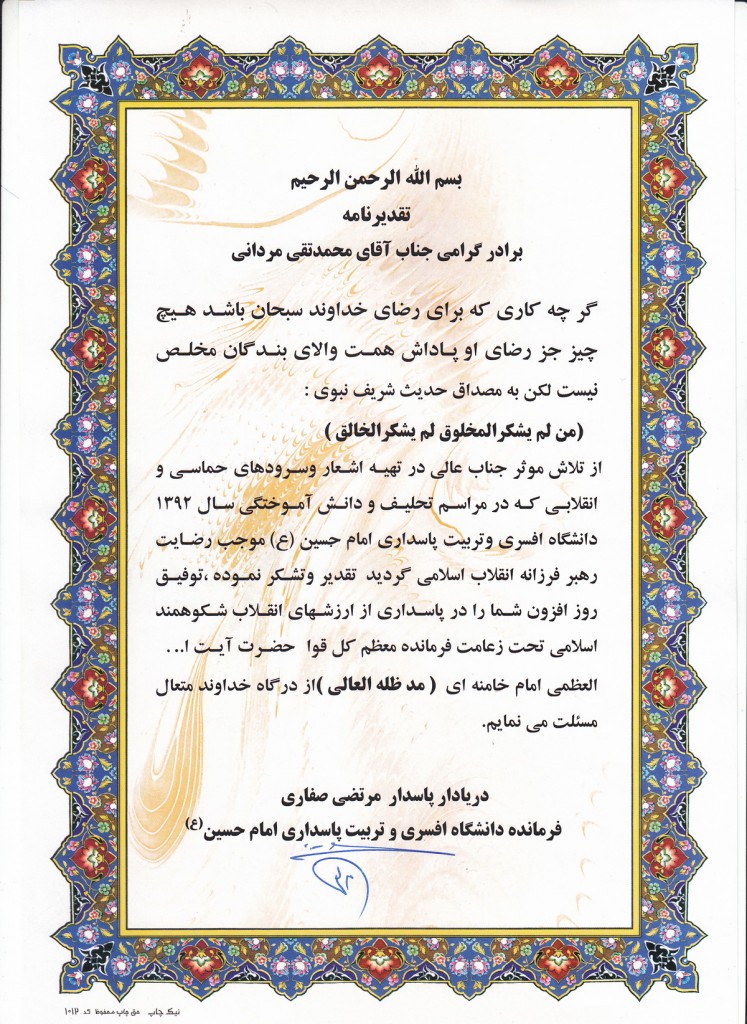 بسم الله الرحمن الرحیم
تقدیرنامه
برادر گرامی جناب آقای محمدتقی مردانی
گر چه کاری که برای رضای خداوند سبحان باشد هیچ
چیز جز رضای او پاداش همت والای بندگان مخلص
نیست لکن به مصداق حدیث شریف نبوی :
(من لم یشکرالمخلوق لم یشکرالخالق )
از تلاش موثر جناب عالی در تهیه اشعار وسرودهای حماسی و
انقلابی که در مراسم تحلیف و دانش آموختگی سال ۱۳۹۲
دانشگاه افسری وتربیت پاسداری امام حسین (ع) موجب رضایت
رهبر فرزانه انقلاب اسلامی گردید تقدیر وتشکر نموده ،توفیق
روز افزون شما را در پاسداری از ارزشهای انقلاب شکوهمند
اسلامی تحت زعامت فرمانده معظم کل قوا حضرت آیت ا...
العظمی امام خامنه ای ( مد ظله العالی )از درگاه خداوند متعال
مسئلت می نمایم.
دریادار پاسدار مرتضی صفاری
فرمانده دانشگاه افسری و تربیت پاسداری امام حسین(ع)
نیک چاپ حق چاپ محفوظ کد ۱۰۱۲